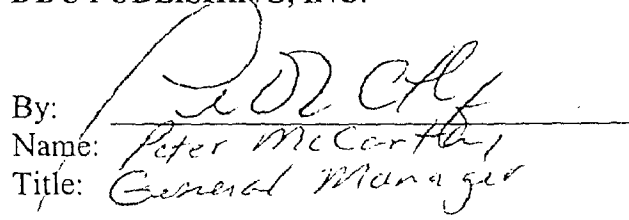 PUBLISHING, INC.
By:
Name: Peter McCarthy
Title: General Manager